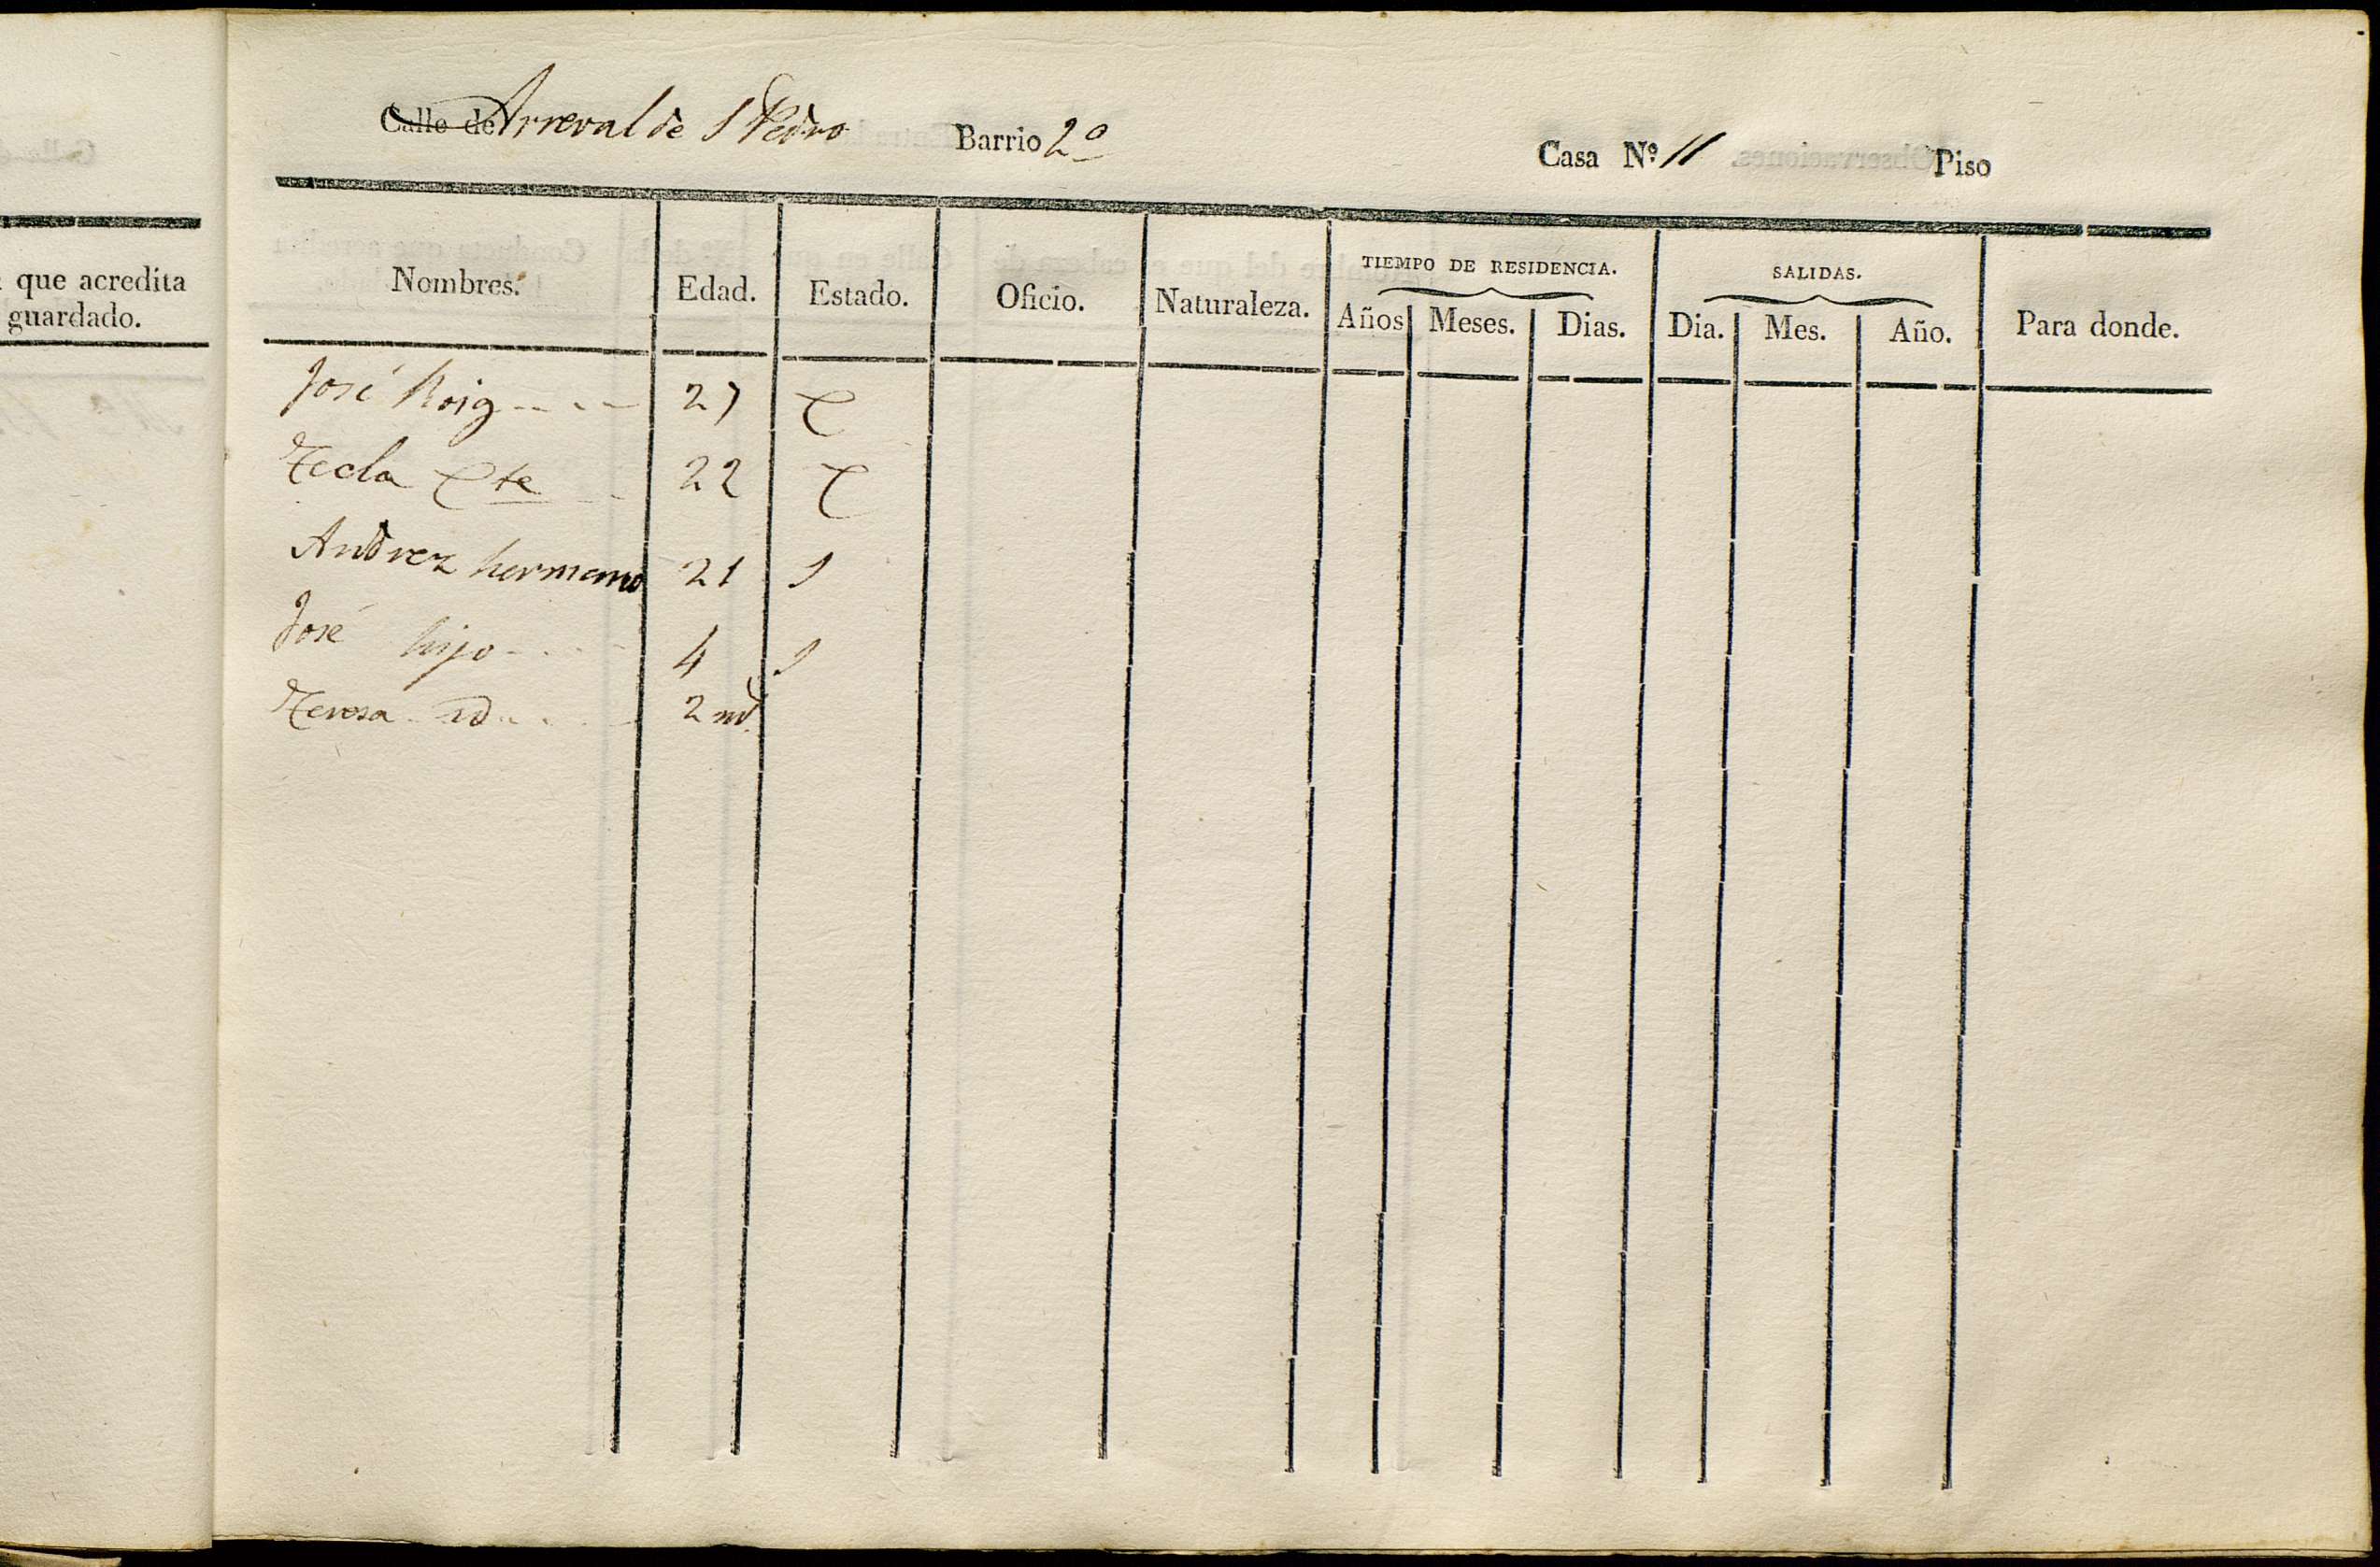 que acredita
guardado.
Calle de Arreval de S Pedro Barrio 2º Casa Nº 11 Piso
Nombres. Edad. Estado. Oficio. Naturaleza. TIEMPO DE RESIDENCIA. SALIDAS. Para donde.
Años Meses. Dias. Dia. Mes. Año.
José Roig 27 C
Tecla Cte 22 C
Andrez hermano 21 S
José hijo 4 S
Teresa id 2 md